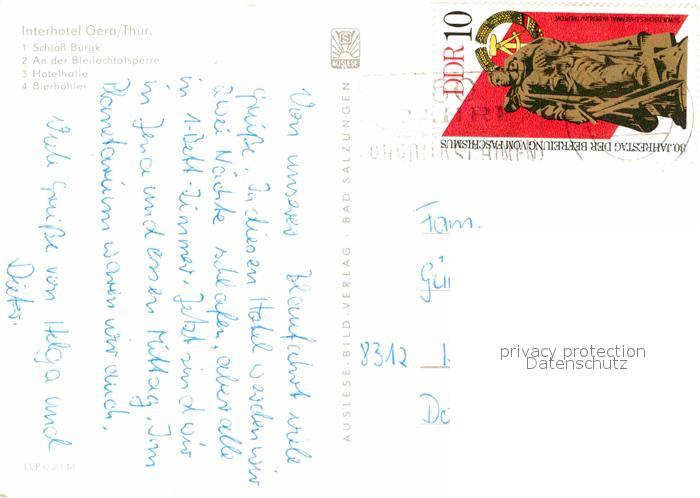 Interhotel Gera/Thür.
1 Schloß Burgk
2 An der Bleilochtalsperre
3 Hotelhalle
4 Bierhöhler
AUSLESE
Von unserer Blaufahrt viele
Grüße. In diesen Hotel werden wir
zwei Nächte schlafen, aber alle
in 1-Bett-Zimmer. Jetzt sind wir
in Jena und essen Mittag. Im
Planetarium waren wir auch.
Viele Grüße von Helga und
Dieter.
EVP 0,20 M
AUSLESE-BILD-VERLAG · BAD SALZUNGEN
DDR 10
SOWJETISCHES EHRENMAL IN BERLIN-TREPTOW
30. JAHRESTAG DER BEFREIUNG VOM FASCHISMUS
Fam.
Gü
8312
Do
privacy protection
Datenschutz